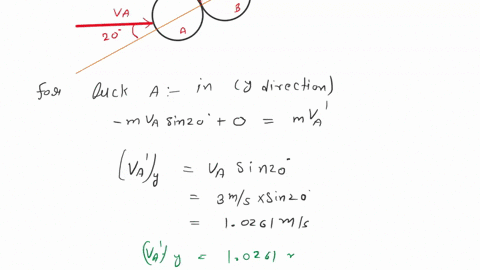 VA
20°
A
B
for Puck A:- in (y direction)
-m VA sin20° + 0 = m VA'
(VA')y = VA Sin20°
= 3 m/s x sin20°
= 1.0261 m/s
(VA')y = 1.0261